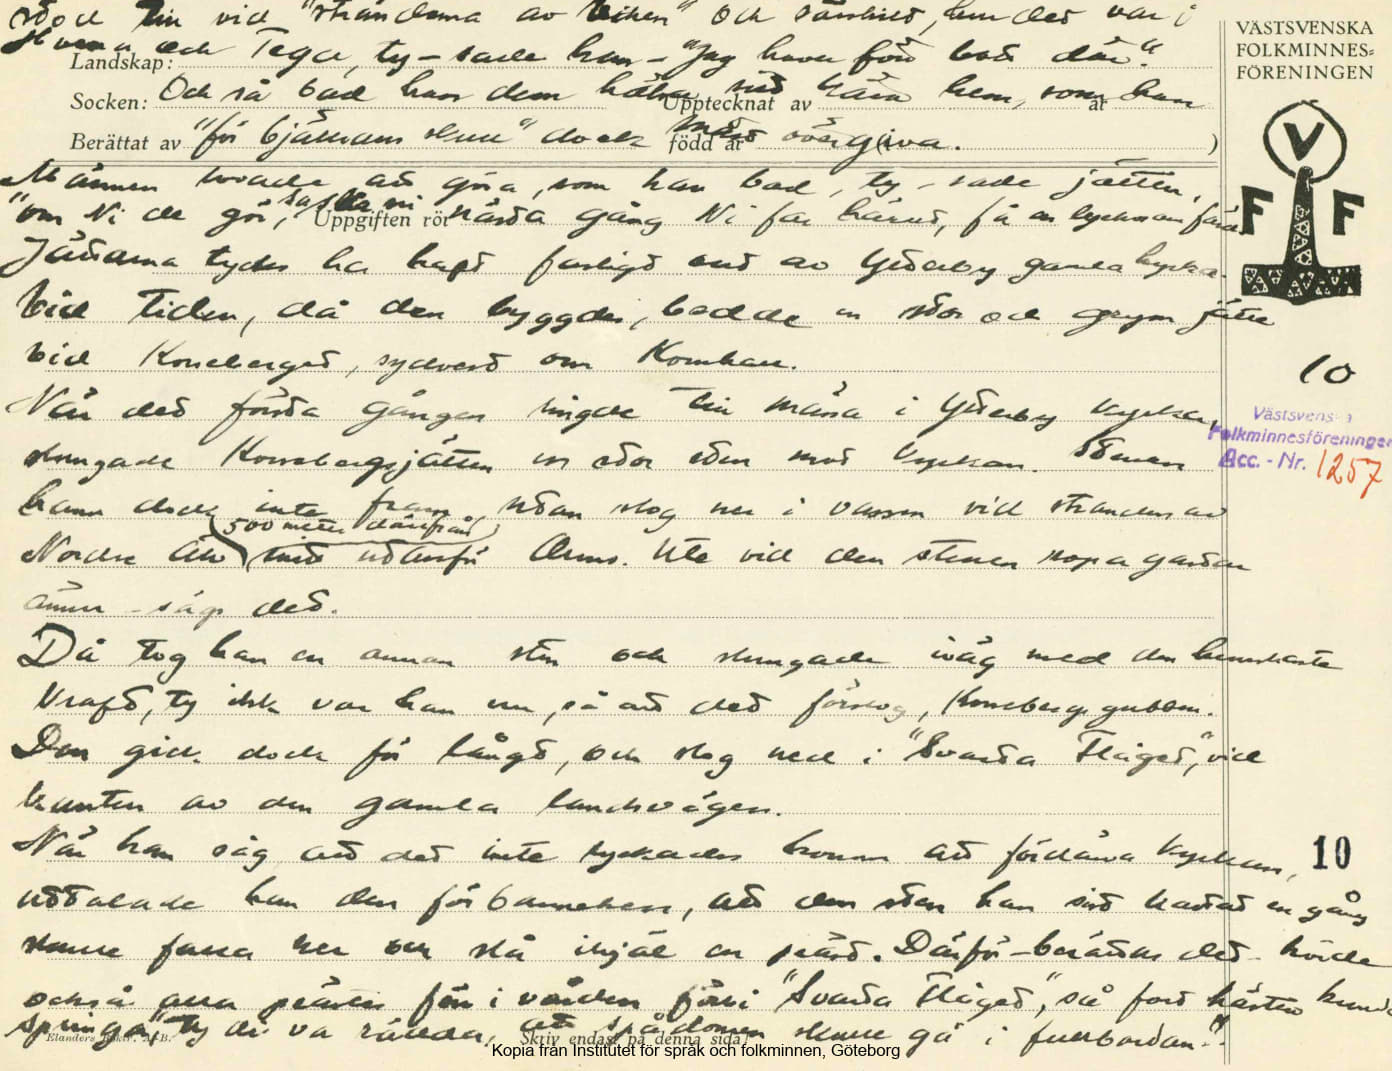 stod till vid "stränderna av viken" och särskilt, hur det var i
Hvena och Tega, ty – sade han – "Jag haver förr bott där."
VÄSTSVENSKA
FOLKMINNES-
FÖRENINGEN
Landskap:
Socken: Och så bad han dem hälsa sitt kära hem, som han
Upptecknat av
år
Berättat av "för bjällrans skull" dock måst övergiva.
född år
V
F F
Männen lovade att göra, som han bad, ty – sade jätten,
"om Ni de gör, så ska ni nästa gång Ni far härut, få en lyckosam färd.
Uppgiften rör
Jättarna tycks ha haft farligt ont av Ytterby gamla kyrka.
Vid tiden, då den byggdes, bodde en stor och grym jätte
vid Korseberget, sydvest om Kornhall.
10
När det första gången ringde till mässa i Ytterby kyrka,
Västsvenska
Folkminnesföreningen
Acc. - Nr. 1257
slungade Korsebergsjätten en stor sten mot kyrkan. Stenen
hann dock inte fram, utan slog ner i vassen vid stranden av
500 meter därifrån
Nordre älv mitt utanför Ulvas. Ute vid den stenen ropar gastar
ännu – sägs det.
Då tog han en annan sten och slungade iväg med den
kraft, ty ilsk var han nu, så att det förslog, Korsebergsgubben.
Den gick dock för långt, och slog ned i "Svarta Håget", vid
kanten av den gamla landsvägen.
När han såg, att det inte lyckades honom att fördärva kyrkan,
10
uttalade han den förbannelsen, att den sten han sist kastat en gång
skulle falla ner och slå ihjäl en präst. Därför – berättas det – körde
också alla präster förr i världen förbi "Svarta Håget", så fort hästen kunde
springa, ty de va rädda, att spådomen skulle gå i fullbordan."
Elanders Boktr. A.-B.
Skriv endast på denna sida!
Kopia från Institutet för språk och folkminnen, Göteborg